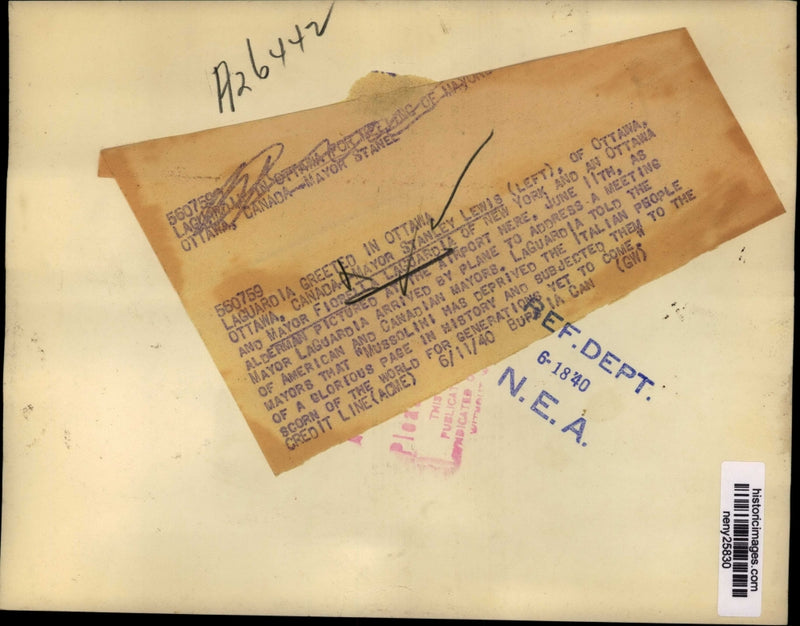 A26442
560759
LAGUARDIA IN OTTAWA FOR MEETING OF MAYORS
OTTAWA, CANADA--MAYOR STANLE
560759
LAGUARDIA GREETED IN OTTAWA
OTTAWA, CANADA--MAYOR STANLEY LEWIS (LEFT), OF OTTAWA,
AND MAYOR FIORELLO LAGUARDIA OF NEW YORK AND AN OTTAWA
ALDERMAN PICTURED AT THE AIRPORT HERE, JUNE 11TH, AS
MAYOR LAGUARDIA ARRIVED BY PLANE TO ADDRESS A MEETING
OF AMERICAN AND CANADIAN MAYORS. LAGUARDIA TOLD THE
MAYORS THAT "MUSSOLINI HAS DEPRIVED THE ITALIAN PEOPLE
OF A GLORIOUS PAGE IN HISTORY AND SUBJECTED THEM TO THE
SCORN OF THE WORLD FOR GENERATIONS YET TO COME."
CREDIT LINE (ACME) 6/11/40 BUR DIA CAN (GW)
REF. DEPT.
6-18'40
N.E.A.
Plea
THIS
PUBLICAT
WITHOUT
historicimages.com
neny25830